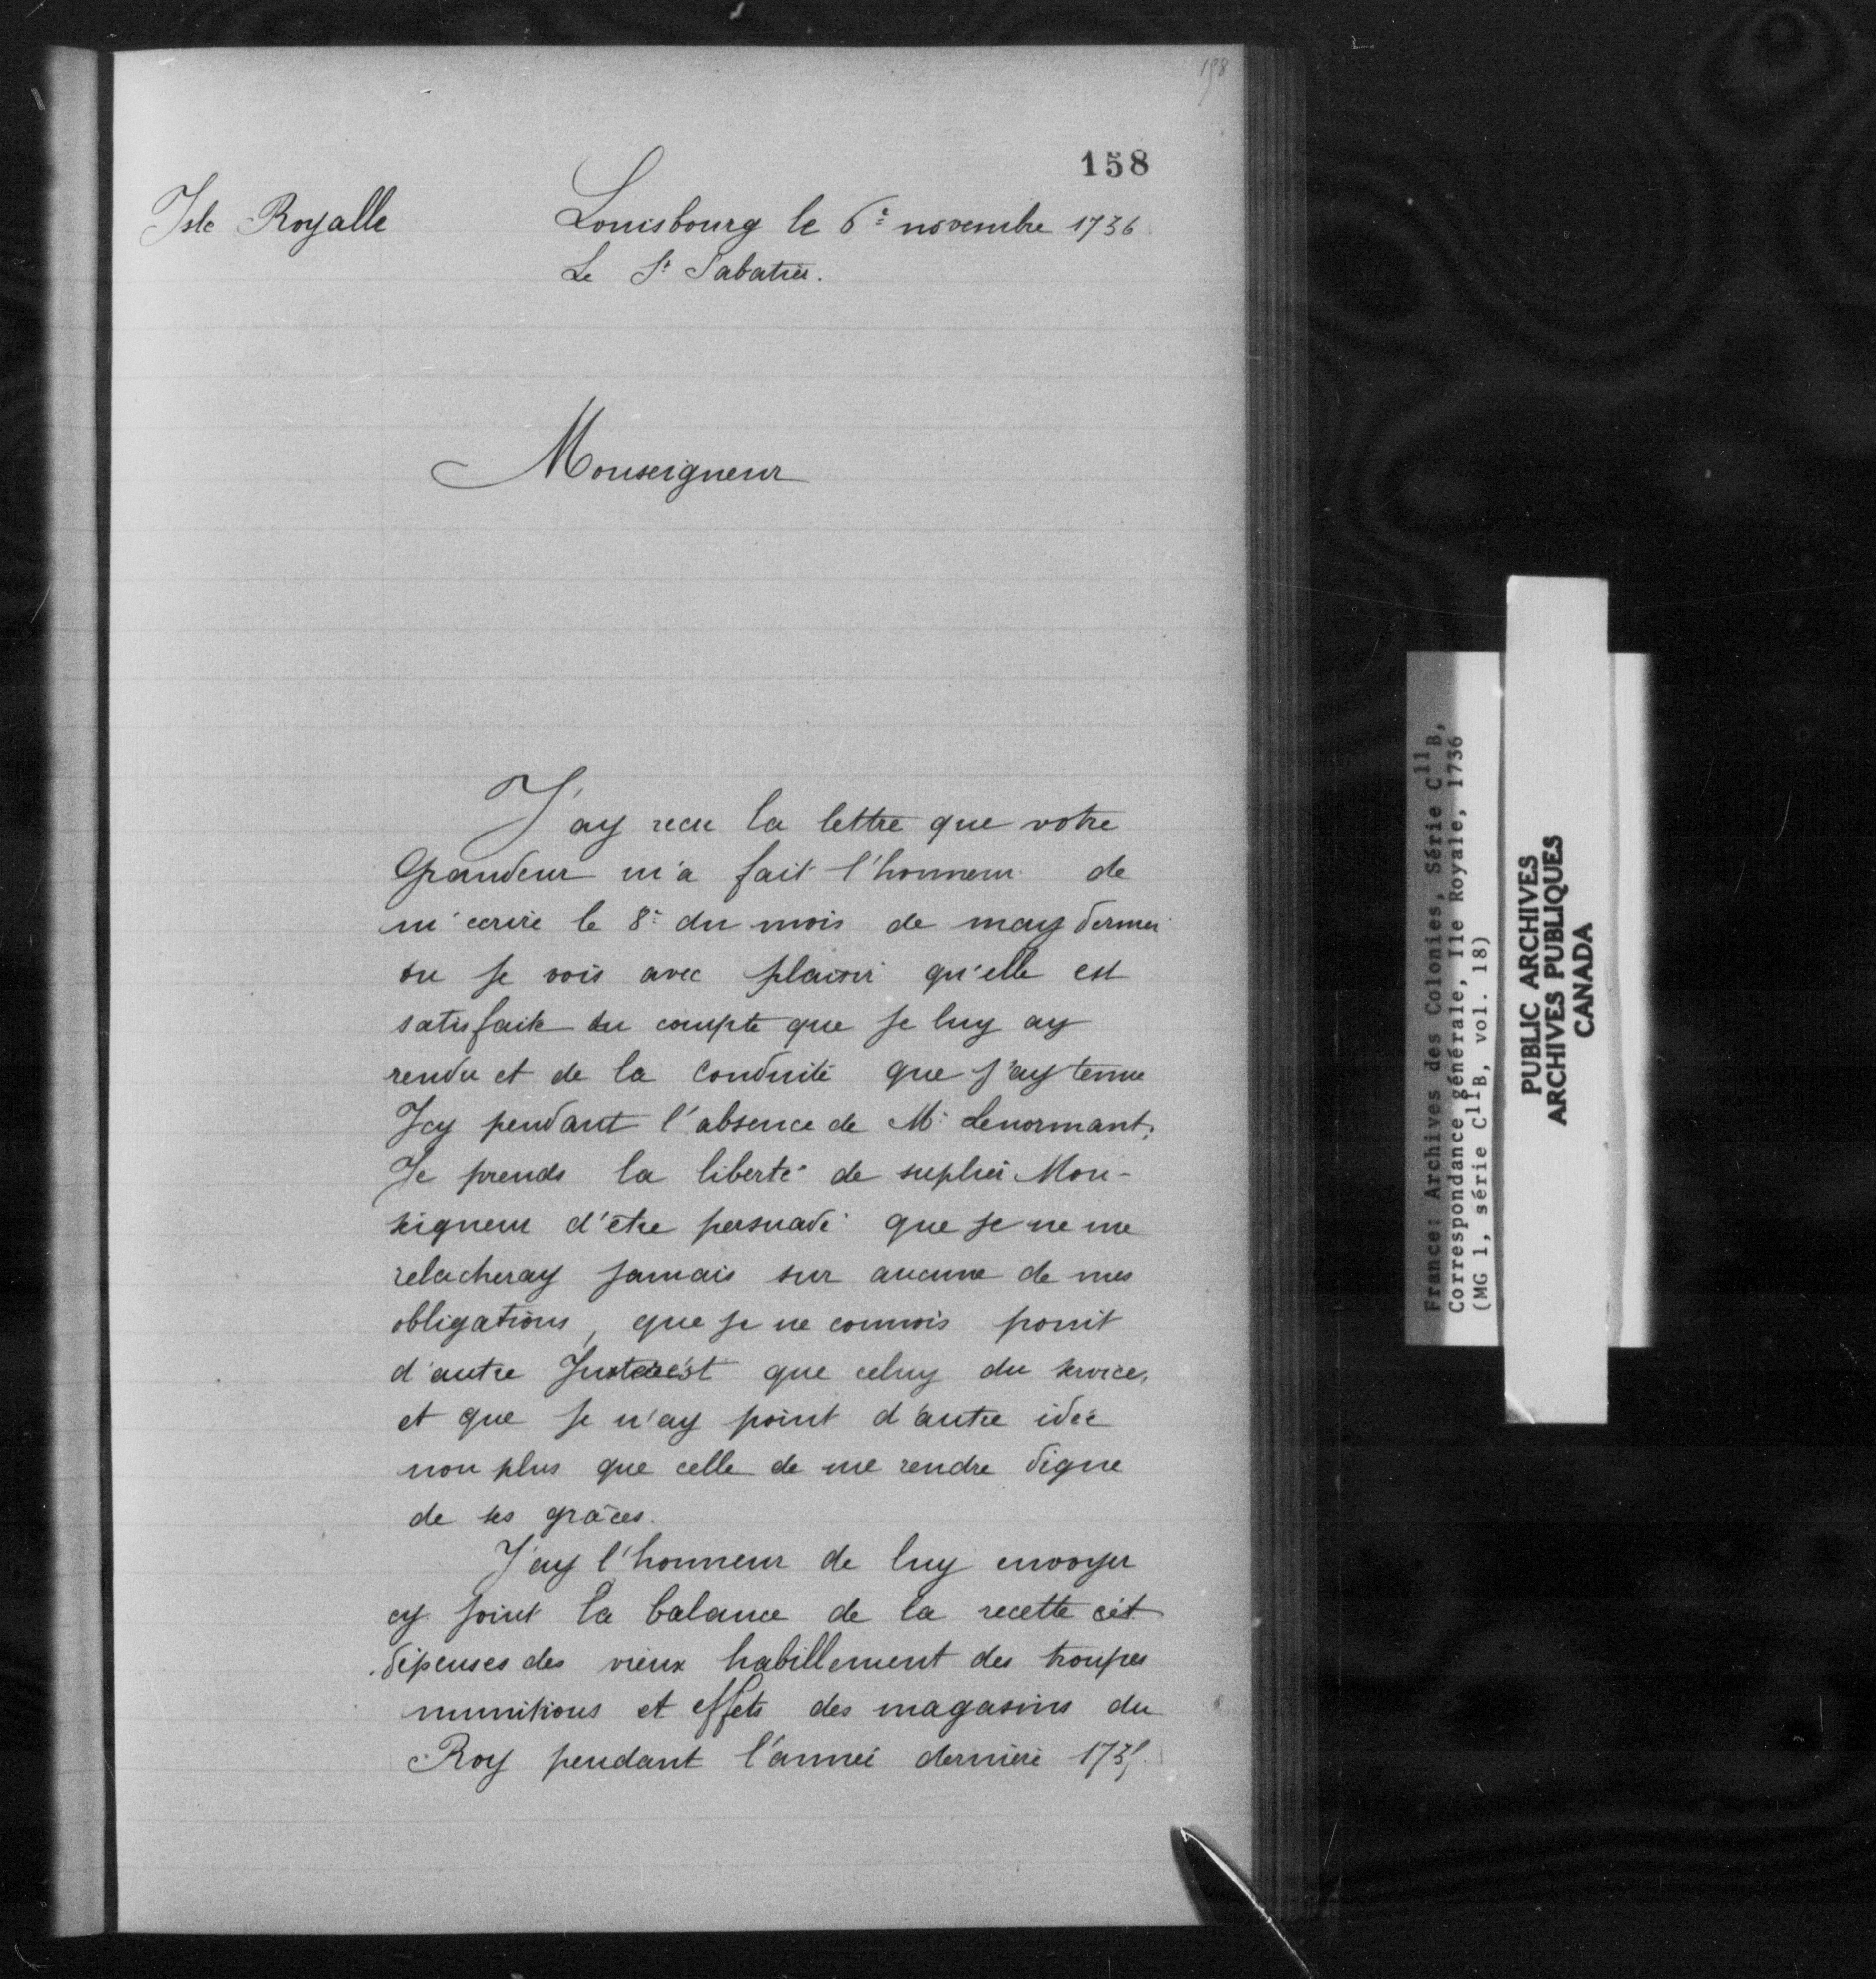 158
158
Isle Royalle
Louisbourg le 6e novembre 1736
Le Sr Sabatier.
Monseigneur
J'ay recu la lettre que votre
Grandeur m'a fait l'honneur de
m'ecrire le 8e du mois de may dernier
ou je vois avec plaisir qu'elle est
satisfaite du compte que je luy ay
rendu et de la conduite que j'ay tenue
Icy pendant l'absence de Mr Lenormant;
Je prends la liberté de suplier Mon-
seigneur d'etre persuadé que je ne me
relacheray jamais sur aucune de mes
obligations, que je ne connois point
d'autre Interest que celuy du service,
et que je n'ay point d'autre idée
non plus que celle de me rendre digne
de ses grâces.
J'ay l'honneur de luy envoyer
cy joint la balance de la recette et
dépenses des vieux habillement des troupes
munitions et effets des magasins du
Roy pendant l'année derniere 1735.
France: Archives des Colonies, Série C11B,
Correspondance générale, Ile Royale, 1736
(MG 1, série C11B, vol. 18)
PUBLIC ARCHIVES
ARCHIVES PUBLIQUES
CANADA